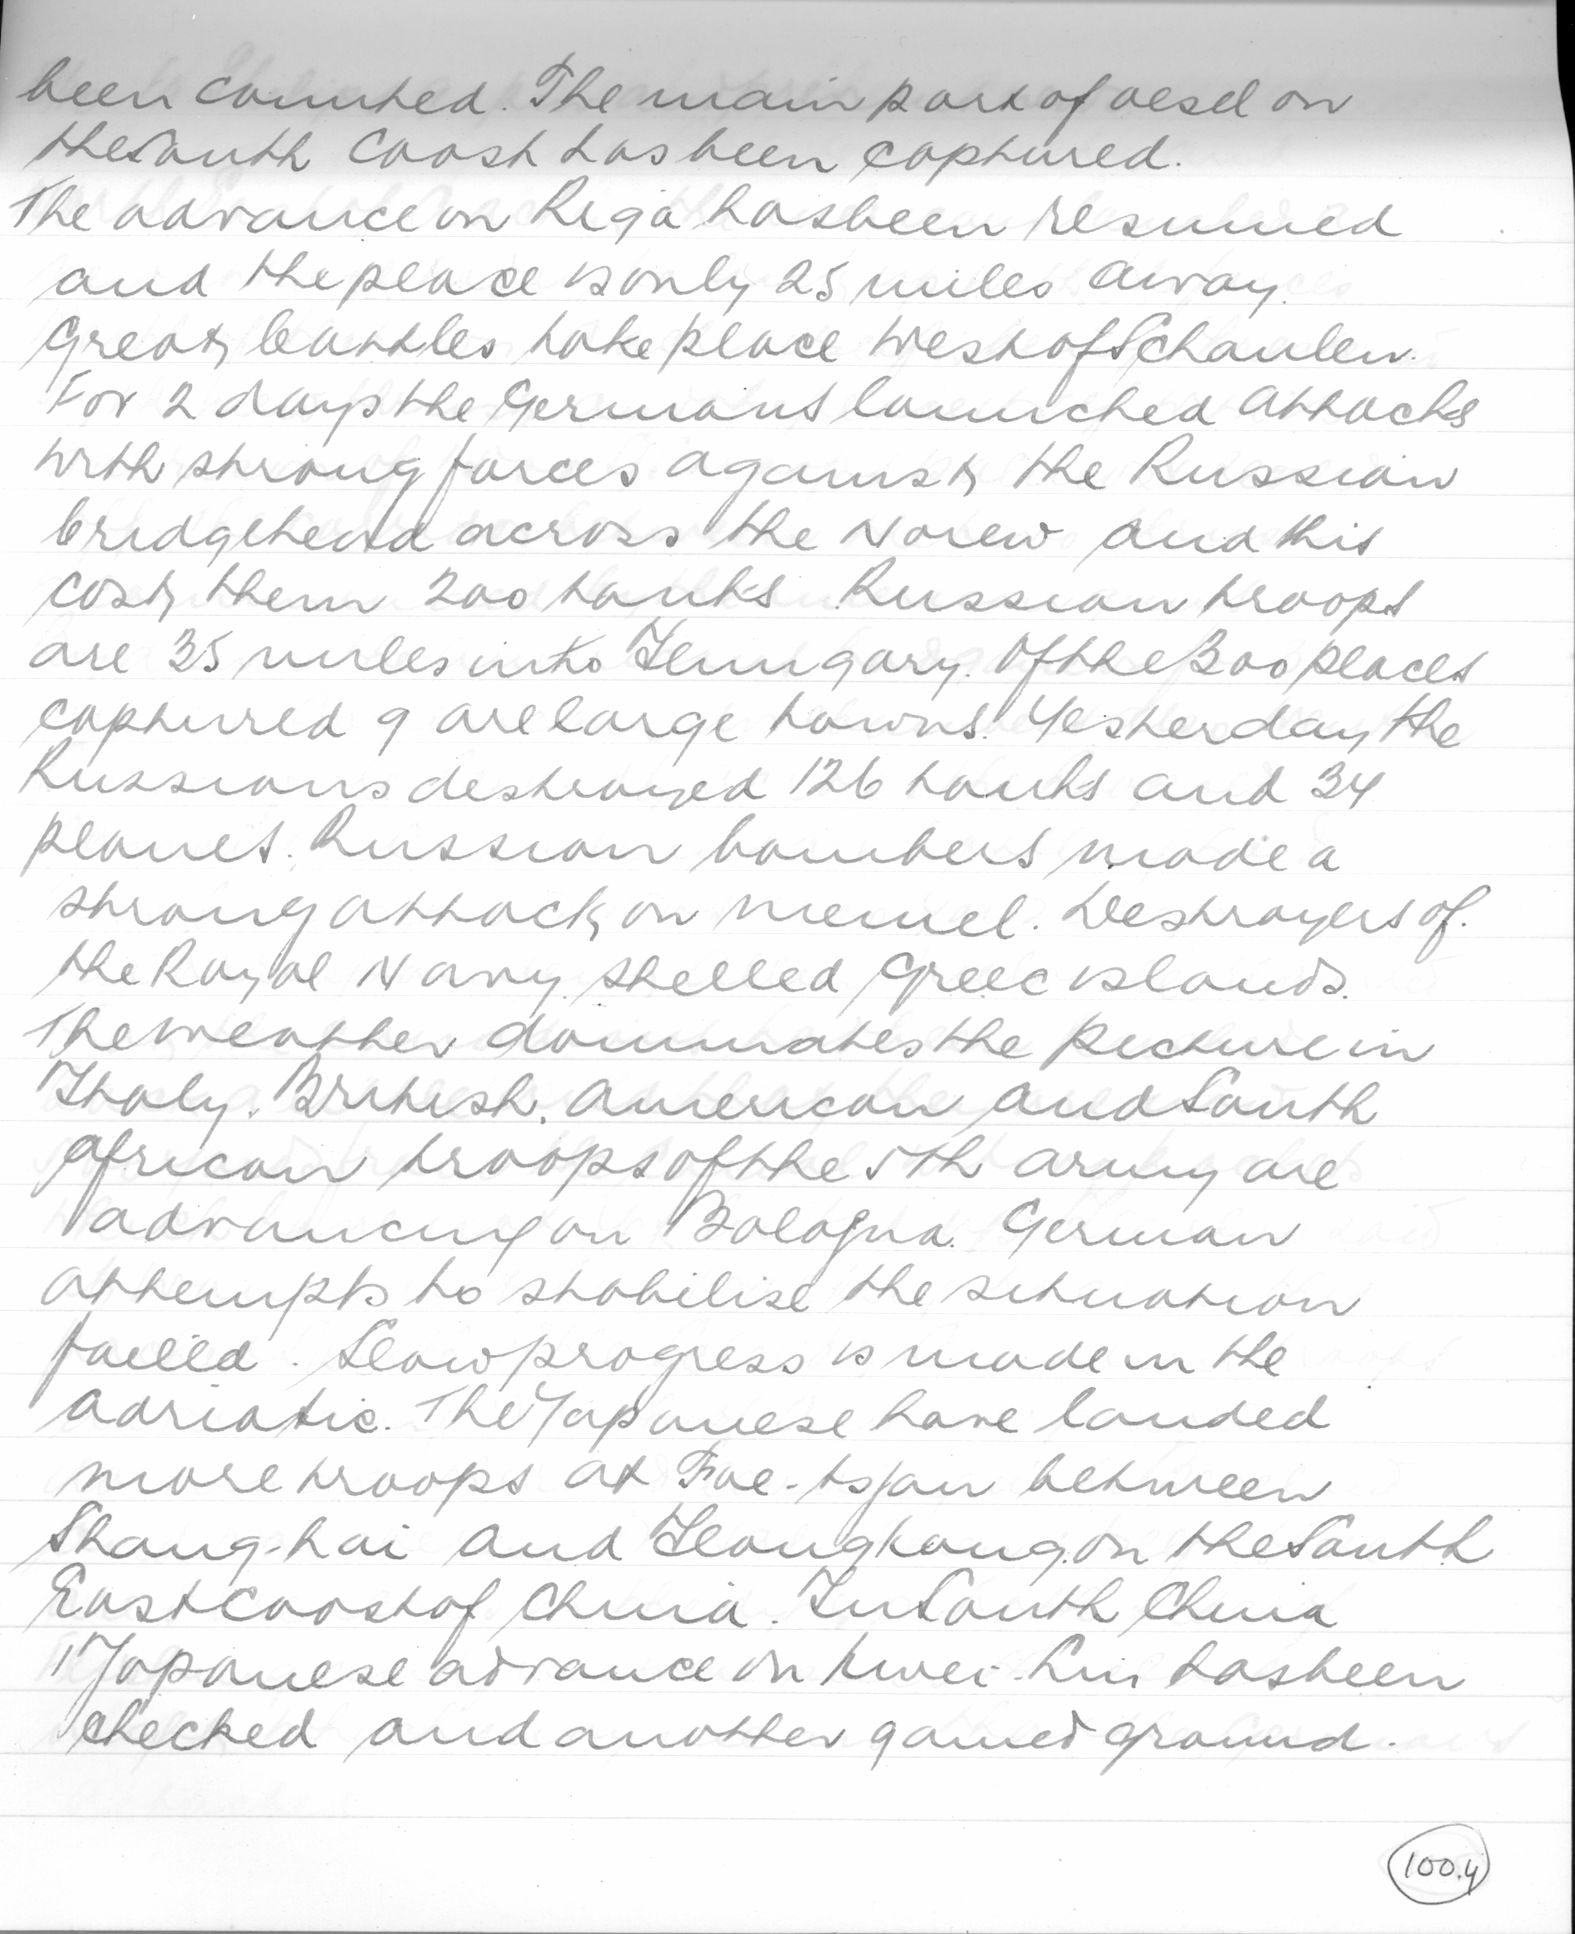 been counted. The main part of oesel on
the South Coast has been captured.
The advance on Riga has been resumed
and the place is only 25 miles away.
Great battles take place West of Schaulen.
For 2 days the Germans launched attacks
with strong forces against the Russian
bridgehead across the Narew and this
cost them 200 tanks. Russian troops
are 35 miles into Hungary. Of the 300 places
captured 9 are large towns. Yesterday the
Russians destroyed 126 tanks and 34
planes. Russian bombers made a
strong attack on Memel. Destroyers of
the Royal Navy shelled Greec islands.
The weather dominates the picture in
Italy. British, American and South
African troops of the 5th army are
advancing on Bologna. German
attempts to stabilise the situation
failed. Slow progress is made in the
Adriatic. The Japanese have landed
more troops at Foe-tsjan between
Shang-hai and Hongkong on the South
East Coast of China. In South China
1 Japanese advance on Kwei-Lin has been
checked and another gained ground.
100.4